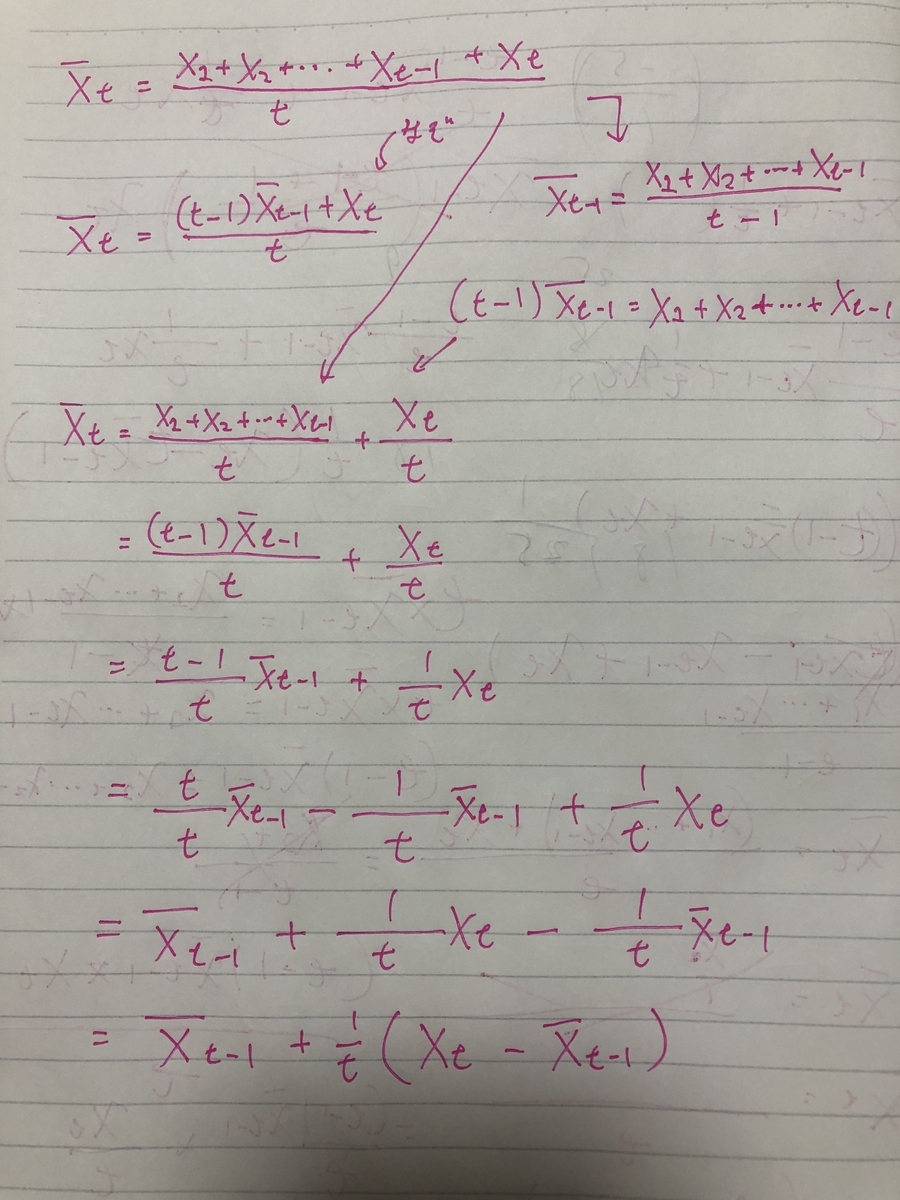 X̄t = (X1 + X2 + ··· + Xt-1 + Xt) / t
X̄t = ((t-1)X̄t-1 + Xt) / t
X̄t-1 = (X1 + X2 + ··· + Xt-1) / (t - 1)
(t-1) X̄t-1 = X1 + X2 + ··· + Xt-1
X̄t = (X1 + X2 + ··· + Xt-1) / t + Xt / t
= (t-1)X̄t-1 / t + Xt / t
= (t-1)/t X̄t-1 + 1/t Xt
= t/t X̄t-1 - 1/t X̄t-1 + 1/t Xt
= X̄t-1 + 1/t Xt - 1/t X̄t-1
= X̄t-1 + 1/t (Xt - X̄t-1)